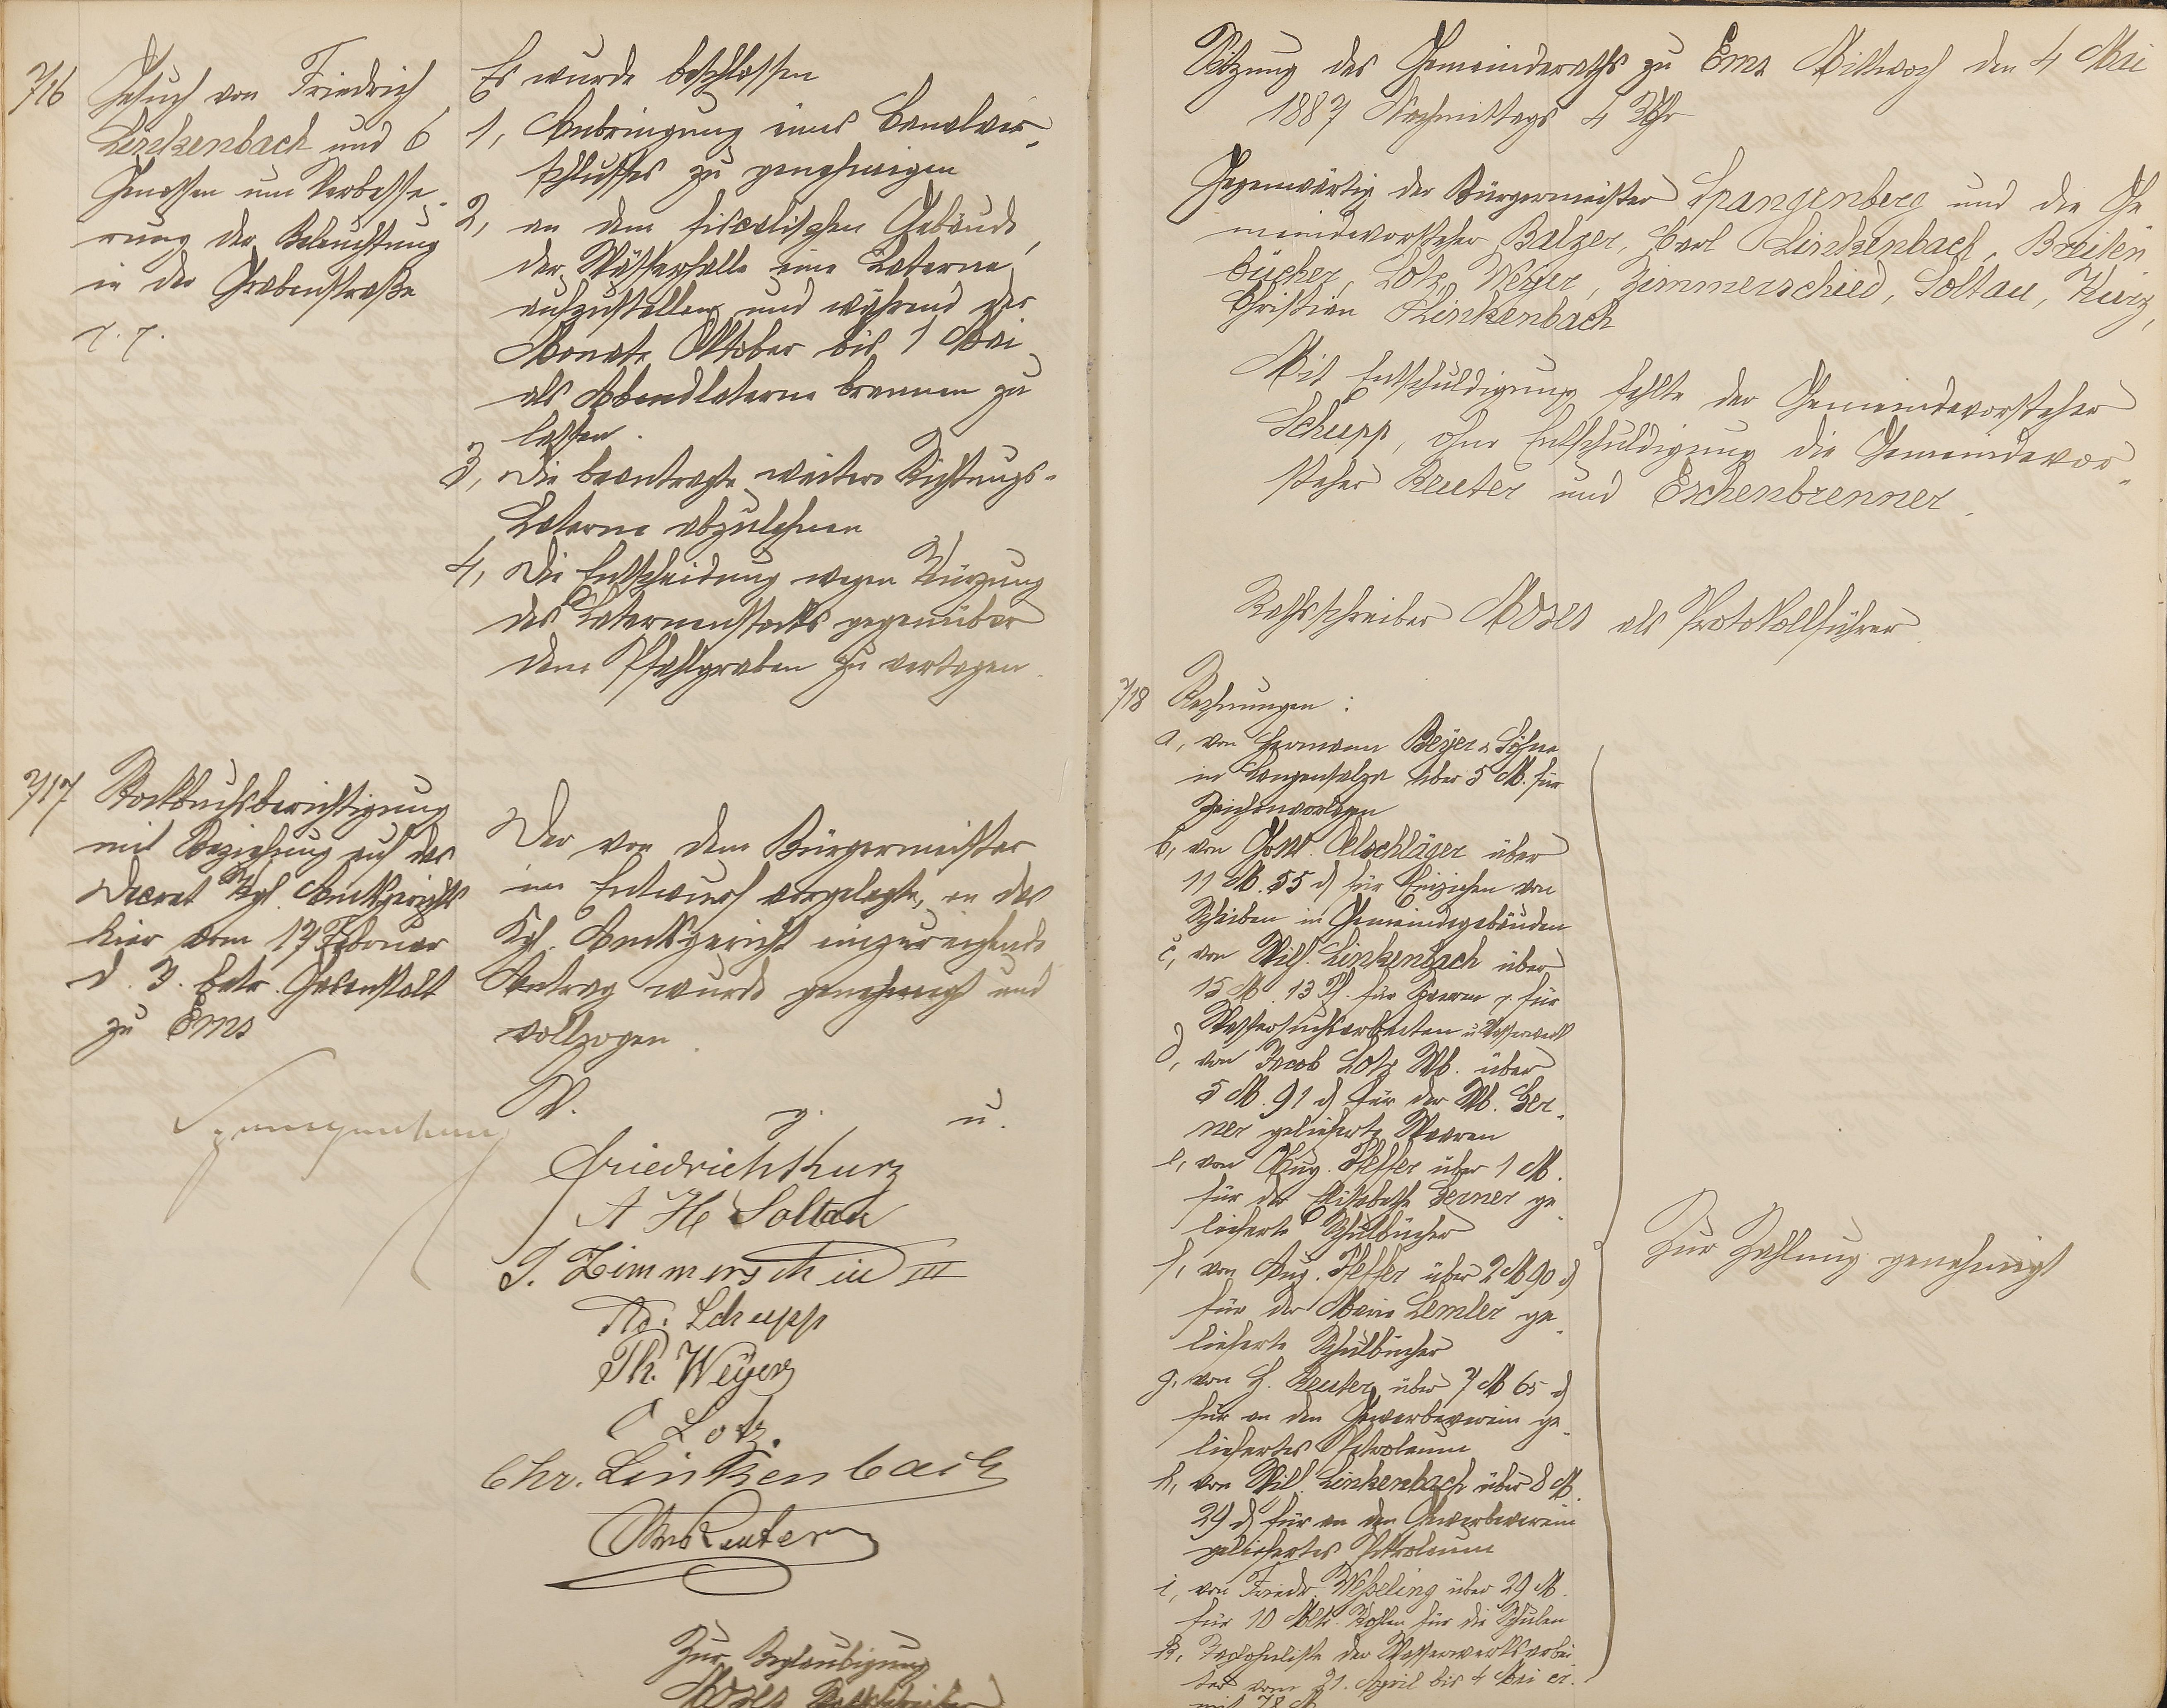 716
Gesuch von Friedrich
Linkenbach und 6
Genossen um Verbesse-
rung der Beleuchtung
in der Grabenstraße
Es wurde beschlossen
1, Anbringung eines Canalver-
schlusses zu genehmigen
2, an dem fiscalischen Gebäude,
der eine Laterne
aufzustellen und während der
Monate Oktober bis 1 Mai
als Abendlaterne brennen zu
lassen.
3, die beantragte weitere Richtungs-
Laterne abzulehnen
4, die Entscheidung wegen Kürzung
des Laternenstocks gegenüber
dem Pfahlgraben zu vertagen.
717
Stockbuchsberichtigung
mit Beziehung auf das
Decret Kgl. Amtsgerichts
hier vom 17 Februar
d. J. betr. Gasanstalt
zu Ems
Der von dem Bürgermeister
im Entwurf vorgelegte, an das
Kgl. Amtsgericht einzureichende
Antrag wurde genehmigt und
vollzogen.
V. g. u.
Friedrich Kurz
A H Soltau
J. Zimmerschied III
Ad. Schupp
Ph. Weyer
C Lotz.
Chr. Linkenbach
Reuter
Zur Beglaubigung
Moses Rathschreiber
Sitzung des Gemeinderaths zu Ems Mittwoch den 4 Mai
1887 Nachmittags 4 Uhr
Gegenwärtig der Bürgermeister Spangenberg und die Ge
meindevorsteher Balzer, Carl Linkenbach, Breiten
bücher, Lotz, Weyer, Zimmerschied, Soltau, Kurz,
Christian Linkenbach
Mit Entschuldigung fehlte der Gemeindevorsteher
Schupp, ohne Entschuldigung die Gemeindevor-
steher Reuter und Eschenbrenner.
Rathschreiber Moses als Protokollführer
718 Rechnungen:
a, von Hermann Beyer & Söhne
in Langensalza über 5 M. für
Zeichenvorlagen
b, von Oelschläger über
11 M. 55 d für Einziehen von
Scheiben in Gemeindegebäuden
c, von Wilh. Linkenbach über
15 M. 13 Pf. für für
u Wasserwerk
d, von Jacob Lotz Wb. über
5 M. 91 d für der Wb. Ger-
ner gelieferte Waaren
e, von Aug. Pfeffer über 1 M.
für der Elisabeth Gerner ge-
lieferte Schulbücher
f, von Aug. Pfeffer über 2 M 90 d
für der Marie Lemler ge-
lieferte Schulbücher
g, von H. Reuter über 7 M 65 d
für an den Gewerbeverein ge-
liefertes Petroleum
h, von Wilh. Linkenbach über 8 M.
29 d für an den Gewerbeverein
geliefertes Petroleum
i, von Friedr. Weßeling über 29 M.
für 10 Kohlen für die Schulen
k, Taglohnliste der Wasserwerksarbei
ter vom 21. April bis 4 Mai cr.
mit 78 M
Zur Zahlung genehmigt